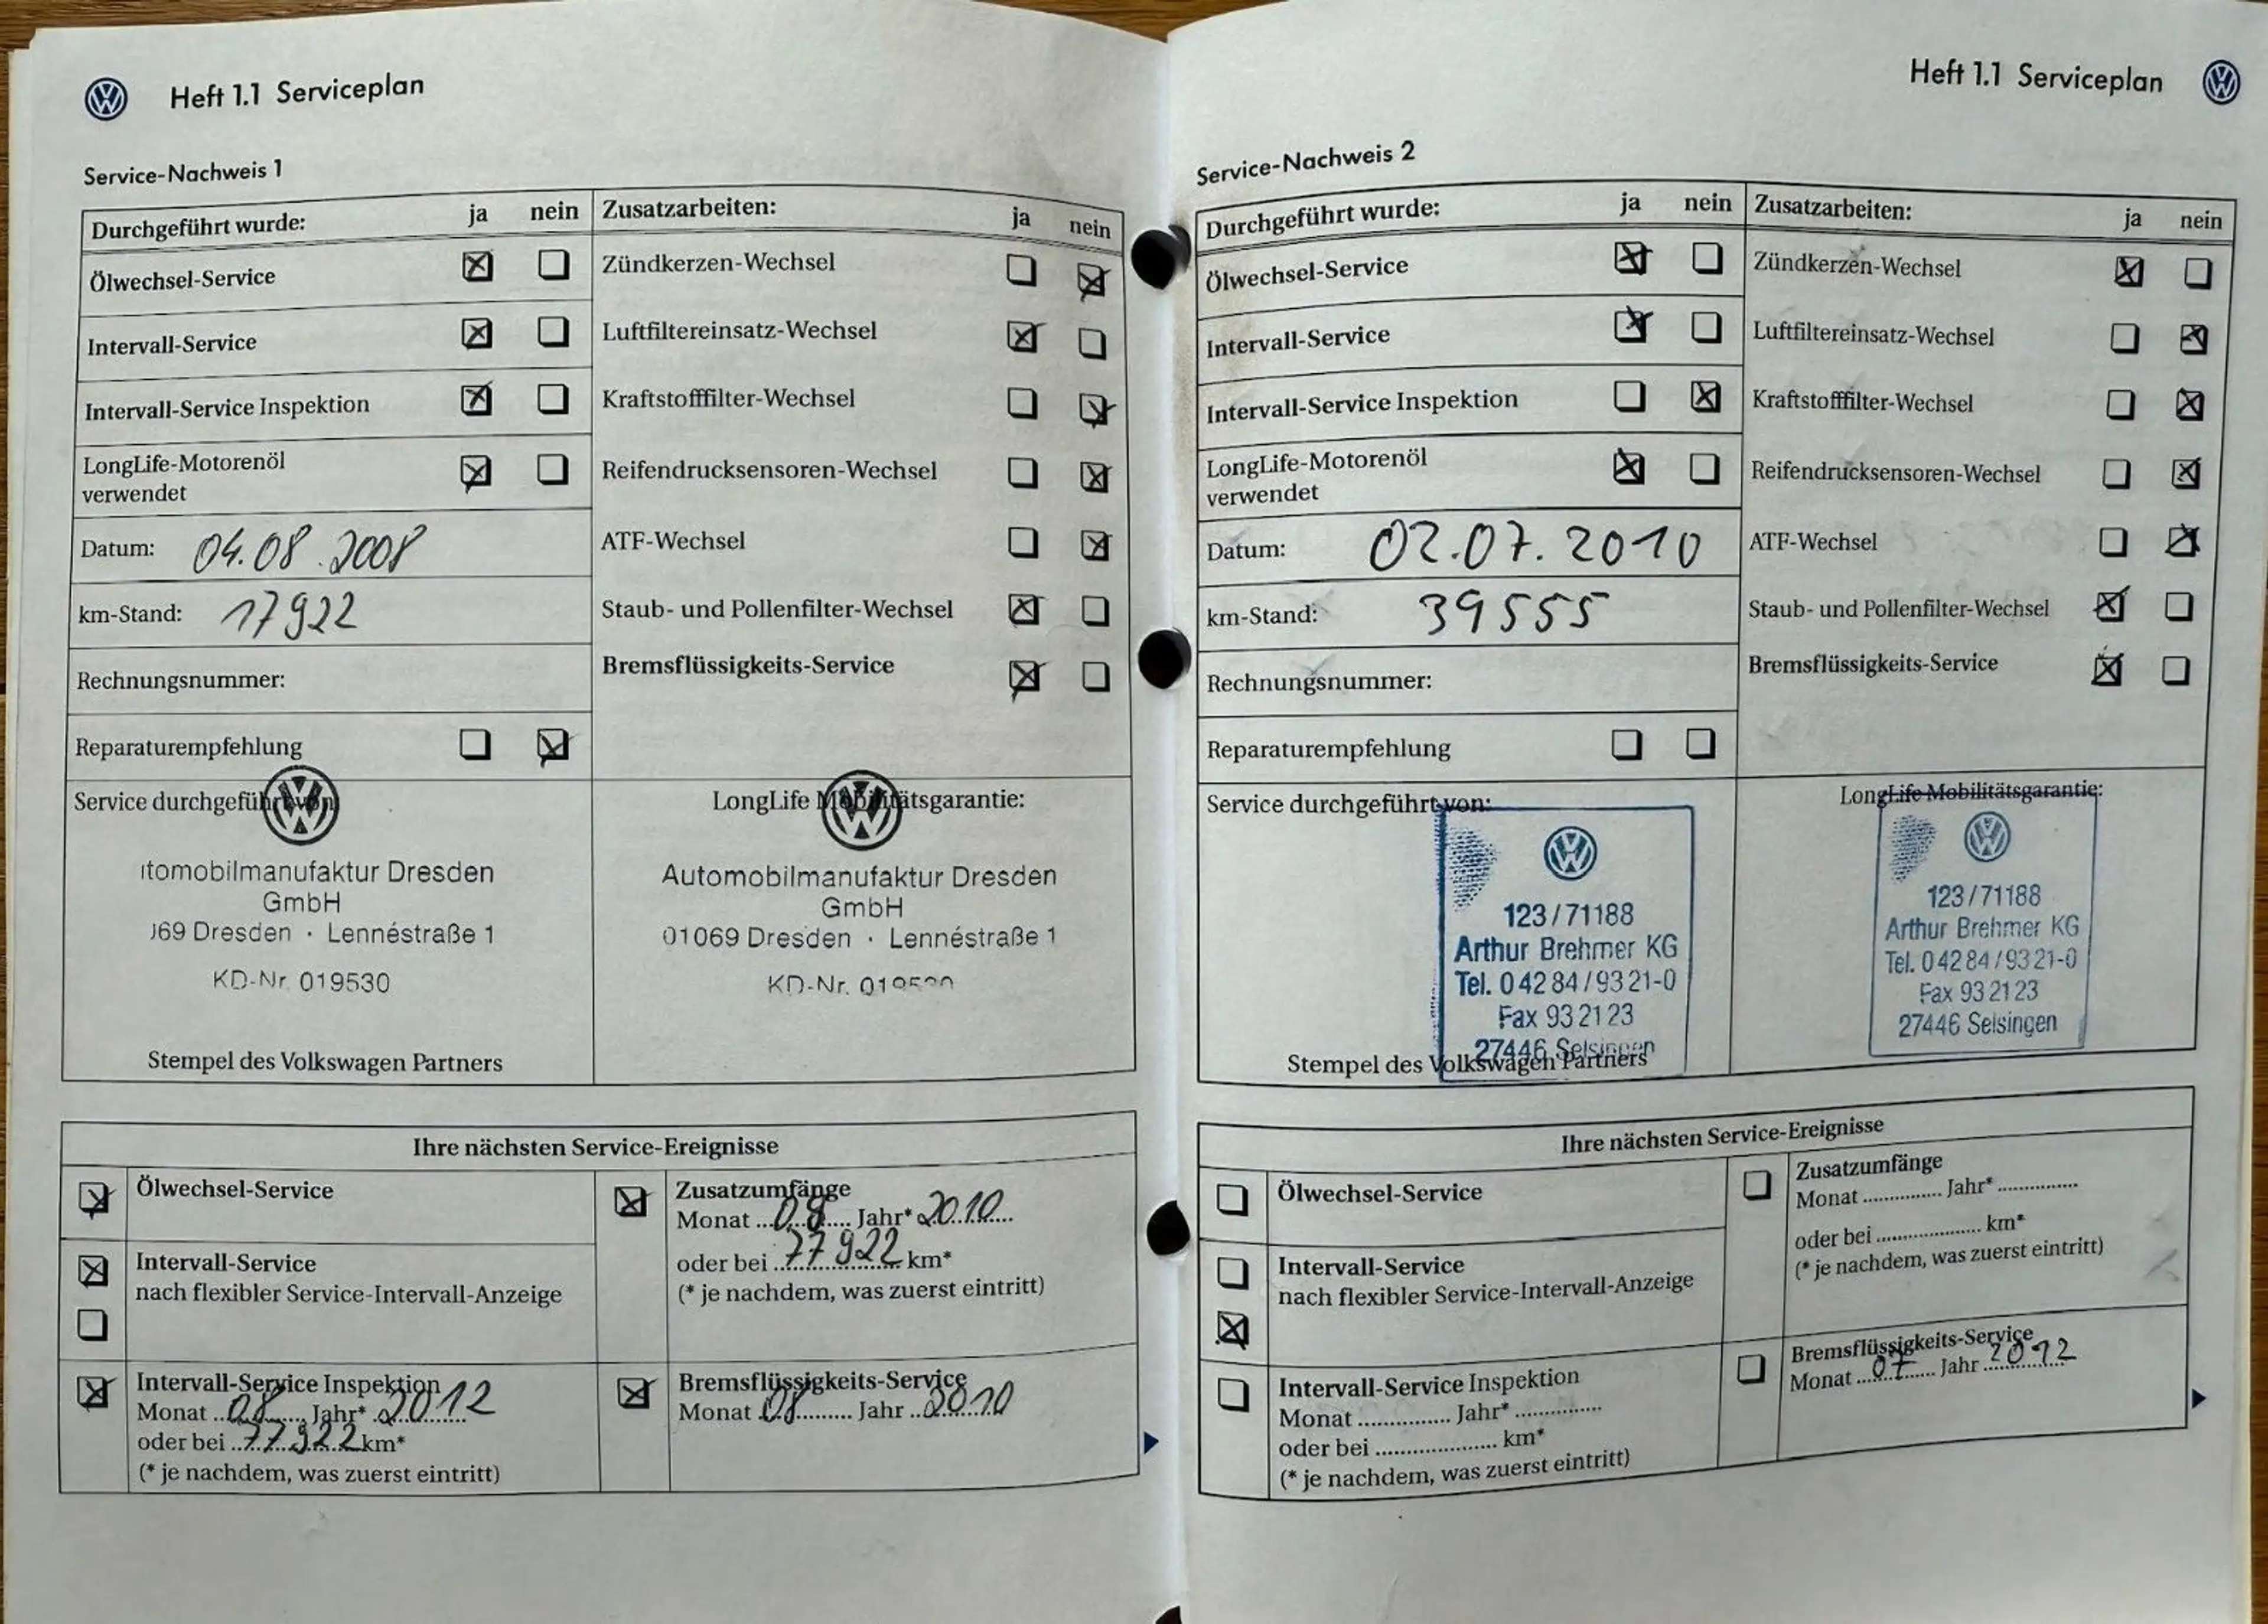 Heft 1.1 Serviceplan
Service-Nachweis 1
Durchgeführt wurde: ja nein
Ölwechsel-Service
Intervall-Service
Intervall-Service Inspektion
LongLife-Motorenöl
verwendet
Datum: 04.08.2008
km-Stand: 17922
Rechnungsnummer:
Reparaturempfehlung
Zusatzarbeiten: ja nein
Zündkerzen-Wechsel
Luftfiltereinsatz-Wechsel
Kraftstofffilter-Wechsel
Reifendrucksensoren-Wechsel
ATF-Wechsel
Staub- und Pollenfilter-Wechsel
Bremsflüssigkeits-Service
Service durchgeführt von:
itomobilmanufaktur Dresden
GmbH
069 Dresden · Lennéstraße 1
KD-Nr. 019530
Stempel des Volkswagen Partners
LongLife Mobilitätsgarantie:
Automobilmanufaktur Dresden
GmbH
01069 Dresden · Lennéstraße 1
KD-Nr. 019530
Ihre nächsten Service-Ereignisse
Ölwechsel-Service
Intervall-Service
nach flexibler Service-Intervall-Anzeige
Intervall-Service Inspektion
Monat 08 Jahr* 2012
oder bei 77922 km*
(* je nachdem, was zuerst eintritt)
Zusatzumfänge
Monat 08 Jahr* 2010
oder bei 77922 km*
(* je nachdem, was zuerst eintritt)
Bremsflüssigkeits-Service
Monat 08 Jahr 2010
Heft 1.1 Serviceplan
Service-Nachweis 2
Durchgeführt wurde: ja nein
Ölwechsel-Service
Intervall-Service
Intervall-Service Inspektion
LongLife-Motorenöl
verwendet
Datum: 02.07.2010
km-Stand: 39555
Rechnungsnummer:
Reparaturempfehlung
Zusatzarbeiten: ja nein
Zündkerzen-Wechsel
Luftfiltereinsatz-Wechsel
Kraftstofffilter-Wechsel
Reifendrucksensoren-Wechsel
ATF-Wechsel
Staub- und Pollenfilter-Wechsel
Bremsflüssigkeits-Service
Service durchgeführt von:
123/71188
Arthur Brehmer KG
Tel. 04284/9321-0
Fax 932123
27446 Selsingen
Stempel des Volkswagen Partners
LongLife Mobilitätsgarantie:
123/71188
Arthur Brehmer KG
Tel. 04284/9321-0
Fax 932123
27446 Selsingen
Ihre nächsten Service-Ereignisse
Ölwechsel-Service
Intervall-Service
nach flexibler Service-Intervall-Anzeige
Intervall-Service Inspektion
Monat ............... Jahr* ..............
oder bei .................... km*
(* je nachdem, was zuerst eintritt)
Zusatzumfänge
Monat ............... Jahr* ..............
oder bei .................... km*
(* je nachdem, was zuerst eintritt)
Bremsflüssigkeits-Service
Monat 07 Jahr 2012